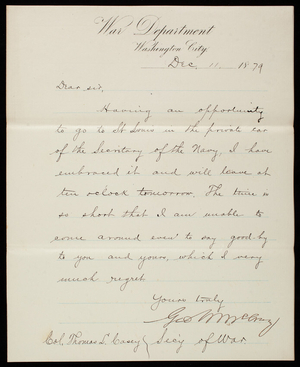 War Department
Washington City.
Dec. 11 1879
Dear sir,
Having an opportunity
to go to St Louis in the private car
of the Secretary of the Navy, I have
embraced it and will leave at
ten oclock tomorrow. The time is
so short that I am unable to
come around even to say good-by
to you and yours, which I very
much regret
Yours truly
Geo W McCrary
Col. Thomas L. Casey Sec'y of War